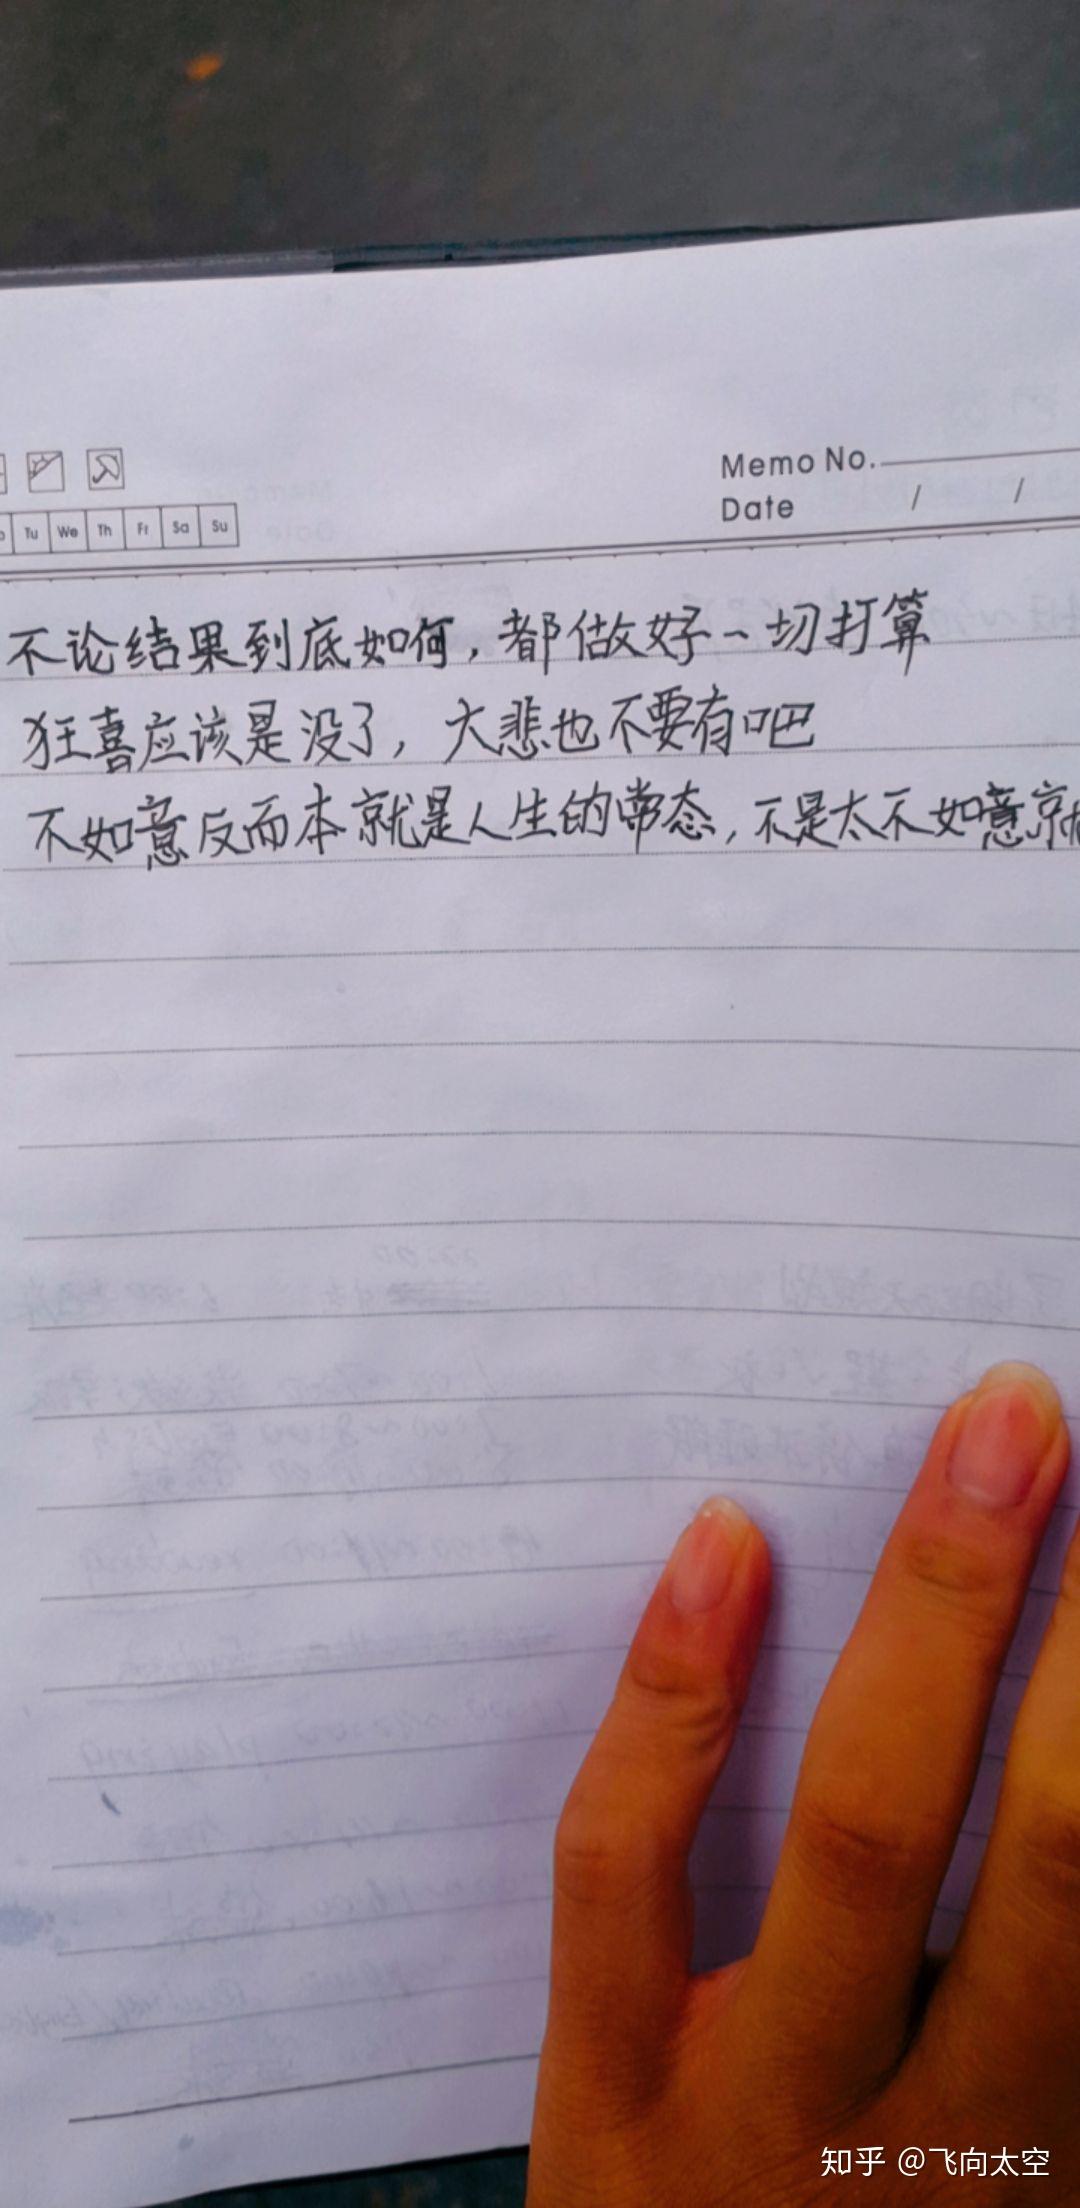 Memo No.
Date / /
Tu We Th Fr Sa Su
不论结果到底如何，都做好一切打算
狂喜应该是没了，大悲也不要有吧
不如意反而本就是人生的常态，不是太不如意就
知乎 @飞向太空